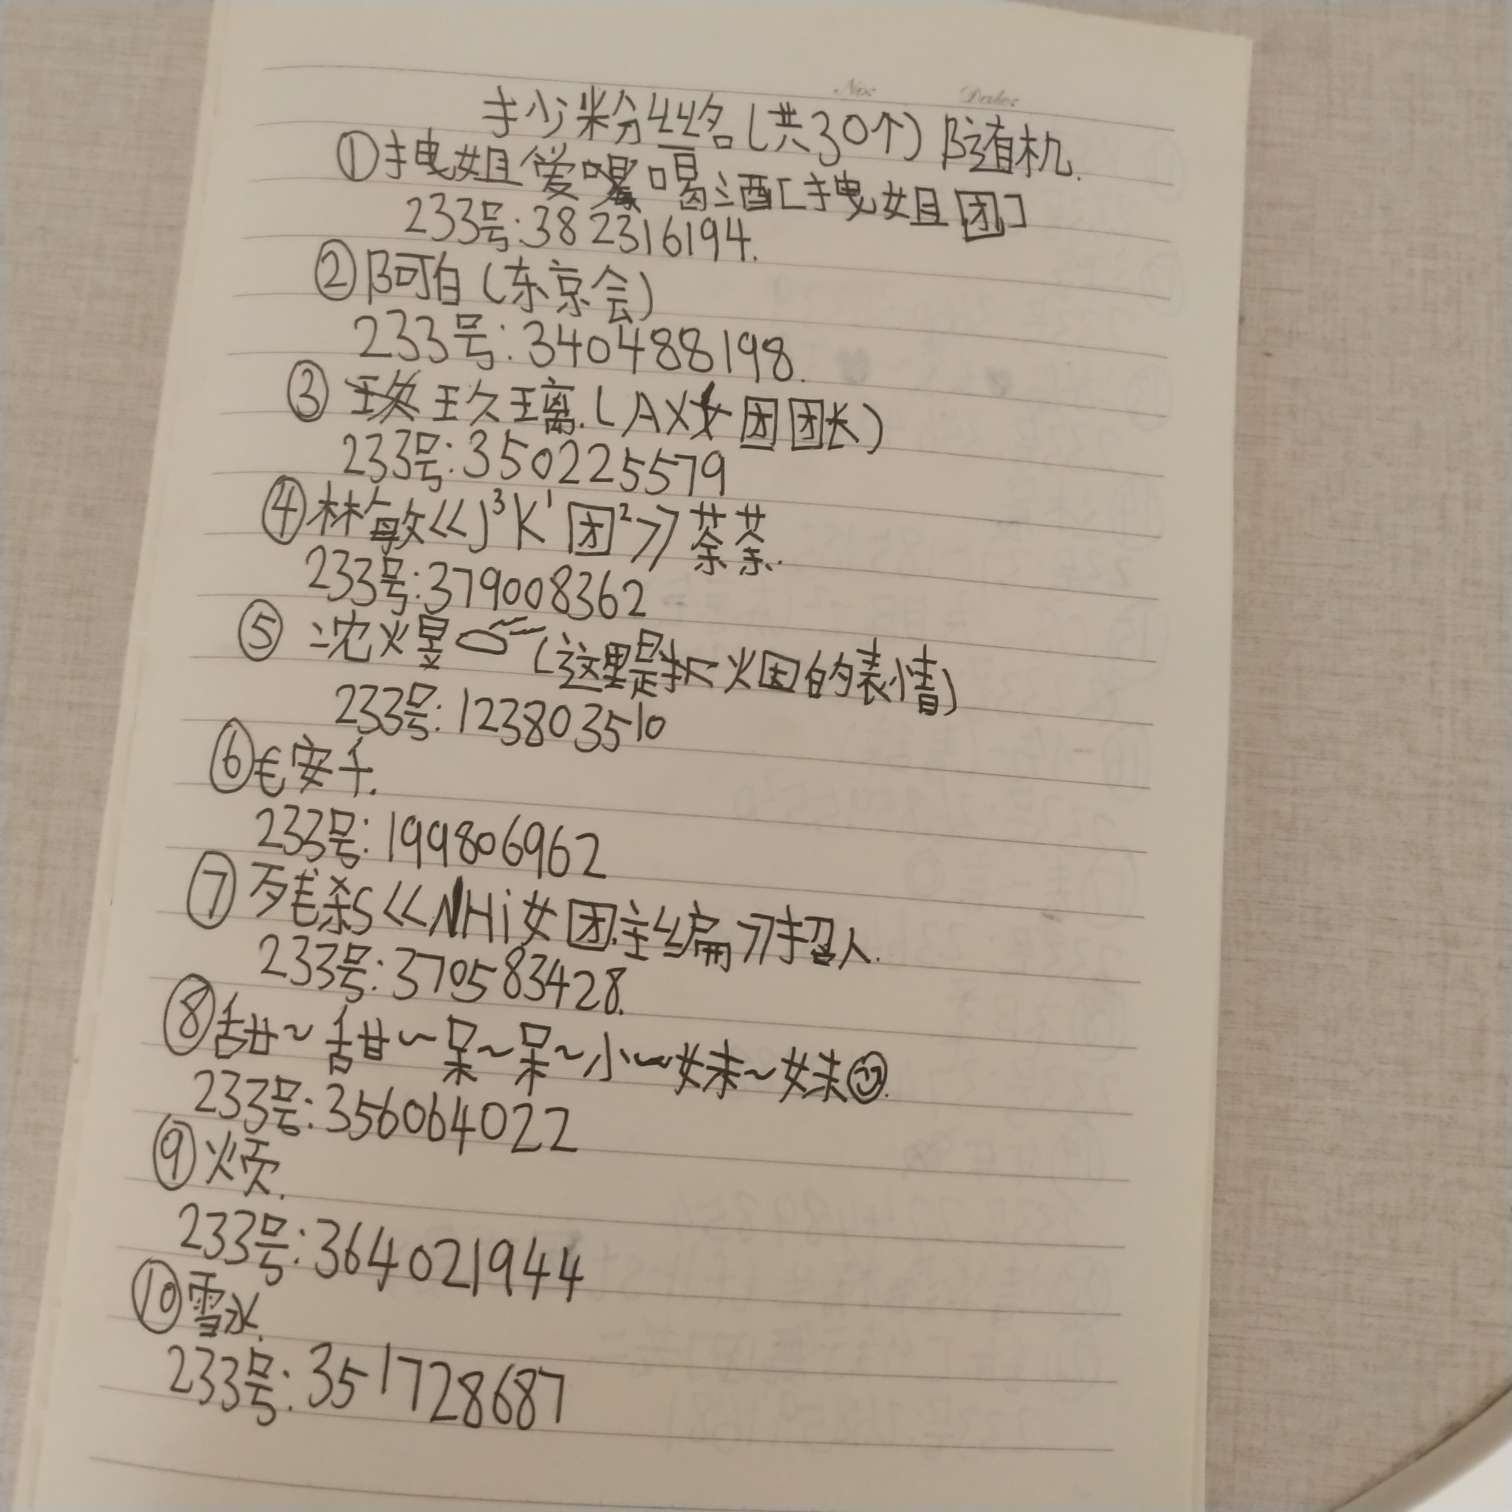 No:
Date:
抄粉丝名(共30个)随机.
①拽姐爱喝酒[拽姐团]
233号:382316194.
②阿白(东京会)
233号:340488198.
③玖璃.(AX女团团长)
233号:350225579
④林敏《J³K¹团²》荼荼.
233号:379008362
⑤沈火昱(这里是抓烟的表情)
233号:123803510
⑥毛安千.
233号:199806962
⑦杀S《NHi女团主编》招人.
233号:370583428.
⑧甜~甜~呆~呆~小~妹~妹☺.
233号:356064022
⑨烦.
233号:364021944
⑩雪冰.
233号:351728687